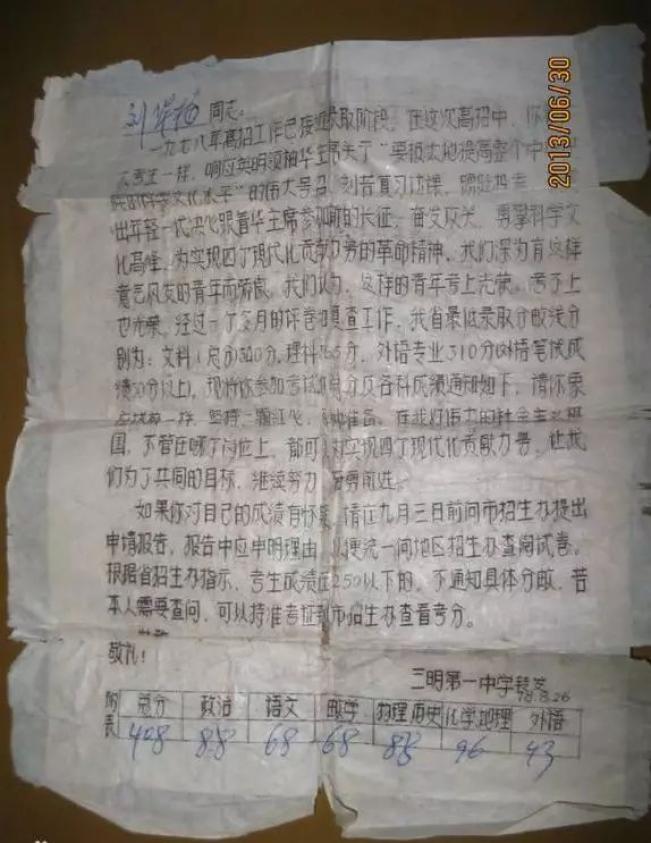 2013/06/30
同志:
一九七八年高招工作已接近录取阶段,在这次高招中,你
大考生一样,响应英明领袖华主席关于"要极大地提高整个中
民的科学文化水平"的伟大号召,刻苦复习功课,踊跃报考
出年轻一代决心跟着华主席参加新的长征,奋发攻关,勇攀科学文
化高峰,为实现四个现代化贡献力量的革命精神,我们深为有这样
意气风发的青年而骄傲。我们认为,这样的青年考上光荣,考不上
也光荣。经过一个多月的评卷和复查工作,我省最低录取分数线分
别为:文科(总分)300分,理科 分,外语专业310分(外语笔试成
绩50分以上)。现将你参加考试的总分及各科成绩通知如下,请你象
一样,坚持一颗红心, 种准备。在我们伟大的社会主义祖
国,不管在哪个岗位上,都可以为实现四个现代化贡献力量。让我
们为了共同的目标,继续努力, 勇前进。
如果你对自己的成绩有怀疑,请在九月三日前向市招生办提出
申请报告,报告中应申明理由,以便统一向地区招生办查阅试卷。
根据省招生办指示,考生成绩在250以下的,不通知具体分数,若
本人需要查问,可以持准考证到市招生办查看考分。
敬礼!
三明第一中学转发
78.8.26
附表 总分 政治 语文 数学 物理历史 化学地理 外语
408 88 68 68 88 96 43